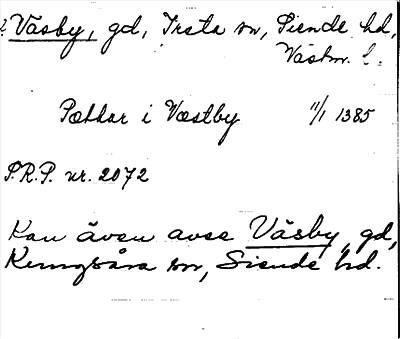 ? Väsby, gd, Irsta sn, Siende hd,
Västm. l.
Pætkar i Væstby 11/1 1385
P.R.P. nr. 2072
Kan även avse Väsby, gd,
Kungsåra sn, Siende hd.